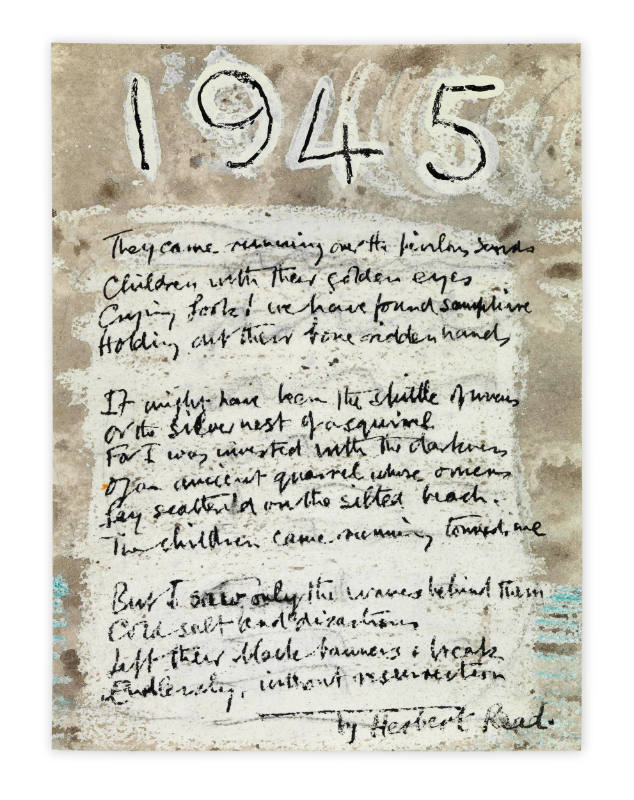 1945
They came running over the perilous sands
Children with their golden eyes
Crying Look! we have found samphire
Holding out their bone-ridden hands
It might have been the spittle of wrens
Or the silver nest of a squirrel
For I was invested with the darkness
Of an ancient quarrel whose omens
Lay scatter'd on the silted beach.
The children came running toward me
But I saw only the waves behind them
Cold salt and disastrous
Lift their black banners & break
Endlessly, without resurrection
by Herbert Read.